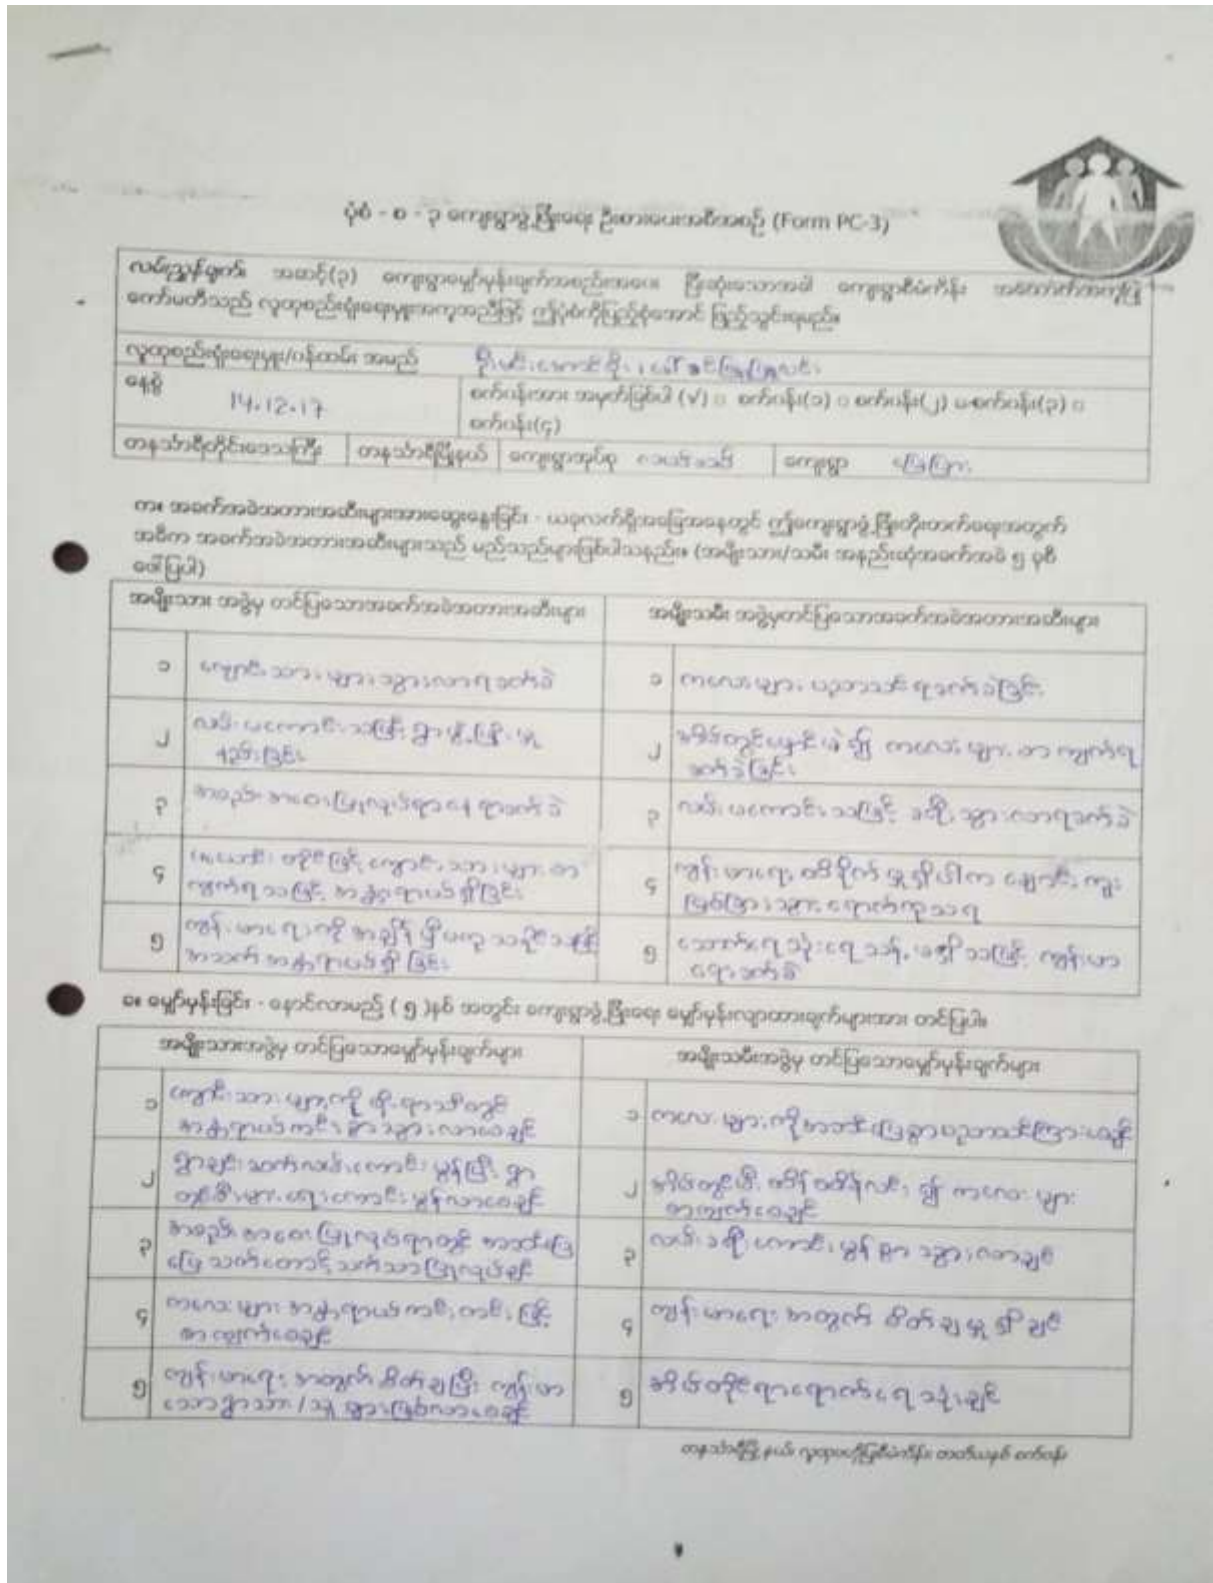 ပုံစံ - စ - ၃ ကျေးရွာဖွံ့ဖြိုးရေး ဦးစားပေးအစီအစဉ် (Form PC-3)
လမ်းညွှန်ချက်၊ အဆင့်(၃) ကျေးရွာမျှော်မှန်းချက်အစည်းအဝေး ပြီးဆုံးသောအခါ ကျေးရွာစီမံကိန်း အထောက်အကူပြု
ကော်မတီသည် လူထုစည်းရုံးရေးမှူးအကူအညီဖြင့် ဤပုံစံကိုပြည့်စုံအောင် ဖြည့်သွင်းရမည်။
လူထုစည်းရုံးရေးမှူး/ဝန်ထမ်း အမည်
နေ့စွဲ 14.12.17
စက်ဝန်းအား အမှတ်ခြစ်ပါ (√) □ စက်ဝန်း(၁) □ စက်ဝန်း(၂) စက်ဝန်း(၃) □
စက်ဝန်း(၄)
တနင်္သာရီတိုင်းဒေသကြီး တနင်္သာရီမြို့နယ် ကျေးရွာအုပ်စု ကျေးရွာ
က။ အခက်အခဲအတားအဆီးများအားဆွေးနွေးခြင်း - ယခုလက်ရှိအခြေအနေတွင် ဤကျေးရွာဖွံ့ဖြိုးတိုးတက်ရေးအတွက်
အဓိက အခက်အခဲအတားအဆီးများသည် မည်သည်များဖြစ်ပါသနည်း။ (အမျိုးသား/သမီး အနည်းဆုံးအခက်အခဲ ၅ ခုစီ
ဖော်ပြပါ)
အမျိုးသား အဖွဲ့မှ တင်ပြသောအခက်အခဲအတားအဆီးများ
အမျိုးသမီး အဖွဲ့မှတင်ပြသောအခက်အခဲအတားအဆီးများ
၁ ကျောင်းသားများသွားလာရခက်ခဲ
၁ ကလေးများ ပညာသင်ရခက်ခဲခြင်း
၂ လမ်းမကောင်းသဖြင့် ရွာဖွံ့ဖြိုးမှု
နည်းခြင်း
၂ အိမ်တွင်မှောင်မဲ၍ ကလေးများ စာကျက်ရ
ခက်ခဲခြင်း
၃ အစည်းအဝေးပြုလုပ်ရာနေရာခက်ခဲ
၃ လမ်းမကောင်းသဖြင့် ခရီးသွားလာရခက်ခဲ
၄ ဖယောင်းတိုင်ဖြင့် ကျောင်းသားများ စာ
ကျက်ရသဖြင့် အန္တရာယ်ရှိခြင်း
၄ ကျန်းမာရေး ထိခိုက်မှုရှိပါက ချောင်းကူး
မြစ်ခြားသွားရောက်ကုသရ
၅ ကျန်းမာရေးကို အချိန်မှီမကုသနိုင်သဖြင့်
အသက်အန္တရာယ်ရှိခြင်း
၅ သောက်ရေသုံးရေသန့်မရှိသဖြင့် ကျန်းမာ
ရေးခက်ခဲ
ခ။ မျှော်မှန်းခြင်း - နောင်လာမည့် (၅)နှစ် အတွင်း ကျေးရွာဖွံ့ဖြိုးရေး မျှော်မှန်းလျာထားချက်များအား တင်ပြပါ။
အမျိုးသားအဖွဲ့မှ တင်ပြသောမျှော်မှန်းချက်များ
အမျိုးသမီးအဖွဲ့မှ တင်ပြသောမျှော်မှန်းချက်များ
၁ ကျောင်းသားများကို မိုးရာသီတွင်
အန္တရာယ်ကင်းစွာသွားလာစေချင်
၁ ကလေးများကိုအဆင်ပြေစွာပညာသင်ကြားစေချင်
၂ ရွာချင်းဆက်လမ်းကောင်းမွန်ပြီး ရွာ
စီးပွားရေးကောင်းမွန်လာစေချင်
၂ အိမ်တွင်မီးထိန်ထိန်လင်း၍ ကလေးများ
စာကျက်စေချင်
၃ အစည်းအဝေးပြုလုပ်ရာတွင် အဆင်ပြေ
ပြေ သက်တောင့်သက်သာပြုလုပ်ချင်
၃ လမ်းခရီးကောင်းမွန်စွာသွားလာချင်
၄ ကလေးများ အန္တရာယ်ကင်းကင်းဖြင့်
စာကျက်စေချင်
၄ ကျန်းမာရေးအတွက် စိတ်ချမှုရှိချင်
၅ ကျန်းမာရေးအတွက် စိတ်ချပြီး ကျန်းမာ
သောရွာသား/သူများဖြစ်လာစေချင်
၅ အိမ်တိုင်ရာရောက်ရေသုံးချင်
တနင်္သာရီမြို့နယ် လူထုဗဟိုပြုစီမံကိန်း တတိယနှစ် စက်ဝန်း